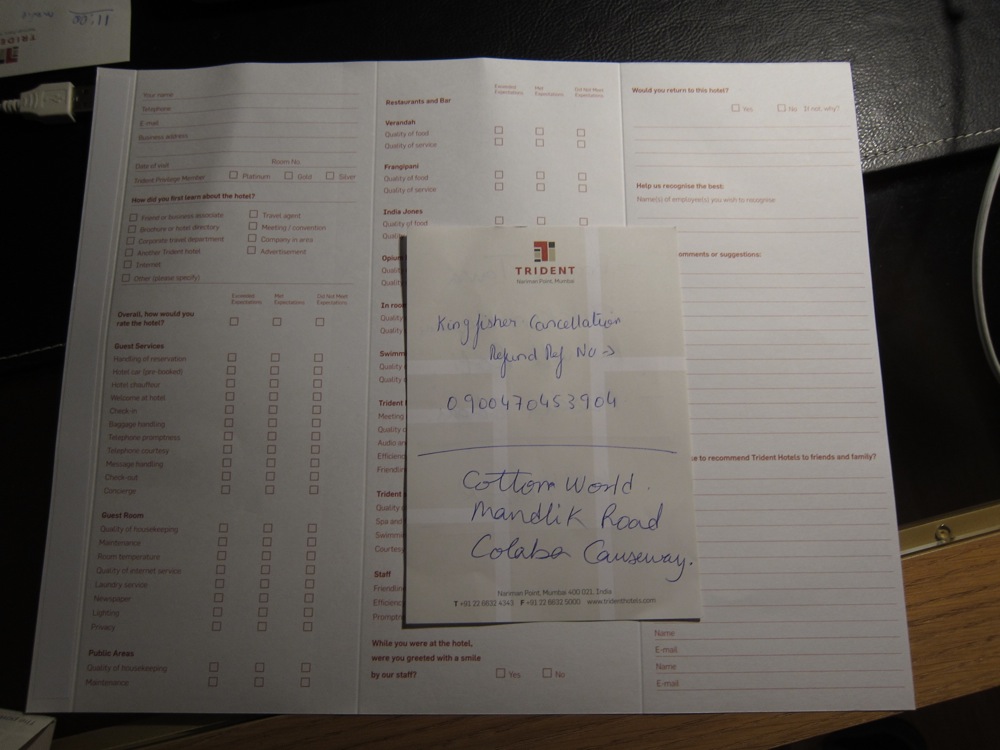 11:00
TRIDE
Your name
Telephone
E-mail
Business address
Date of visit
Room No
Trident Privilege Member
Platinum
Gold
Silver
How did you first learn about the hotel?
Friend or business associate
Brochure or hotel directory
Corporate travel department
Another Trident hotel
Internet
Other (please specify)
Travel agent
Meeting / convention
Company in area
Advertisement
Exceeded Expectations
Met Expectations
Did Not Meet Expectations
Overall, how would you
rate the hotel?
Guest Services
Handling of reservation
Hotel car (pre-booked)
Hotel chauffeur
Welcome at hotel
Check-in
Baggage handling
Telephone promptness
Telephone courtesy
Message handling
Check-out
Concierge
Guest Room
Quality of housekeeping
Maintenance
Room temperature
Quality of internet service
Laundry service
Newspaper
Lighting
Privacy
Public Areas
Quality of housekeeping
Maintenance
Restaurants and Bar
Exceeded Expectations
Met Expectations
Did Not Meet Expectations
Verandah
Quality of food
Quality of service
Frangipani
Quality of food
Quality of service
India Jones
Quality of food
Qual
Opium
Qualit
Qualit
In room
Quality
Quality
Swimm
Quality
Quality
Trident
Meeting
Quality o
Audio an
Efficienc
Friendlin
Trident
Quality o
Spa and
Swimmi
Courtesy
Staff
Friendlin
Efficienc
Promptn
While you were at the hotel,
were you greeted with a smile
by our staff?
Yes
No
Would you return to this hotel?
Yes
No If not, why?
Help us recognise the best:
Name(s) of employee(s) you wish to recognise
omments or suggestions:
ke to recommend Trident Hotels to friends and family?
Name
E-mail
Name
E-mail
TRIDENT
Nariman Point, Mumbai
Kingfisher Cancellation
Refund Ref No →
0900470453904
Cotton World.
Mandlik Road
Colaba Causeway.
Nariman Point, Mumbai 400 021, India
T +91 22 6632 4343 F +91 22 6632 5000 www.tridenthotels.com